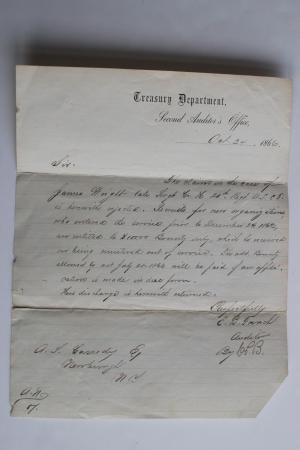 Treasury Department,
Second Auditor's Office,
Oct. 24, 1866
Sir.
The claim in the case of
James Wright late Sergt Co. K. 20th Regt U.S.C.T.
is herewith rejected. Recruits for new organizations
who entered the service prior to December 24, 1863,
are entitled to $100.00 Bounty only, which he received
on being mustered out of service. The add. Bounty
allowed by act July 28. 1866 will be paid if an appli-
cation is made in due form.
His discharge is herewith returned.
Respectfully
E. B. French
Auditor
By
A. S. Cassedy Esq
Newburgh
N. Y.